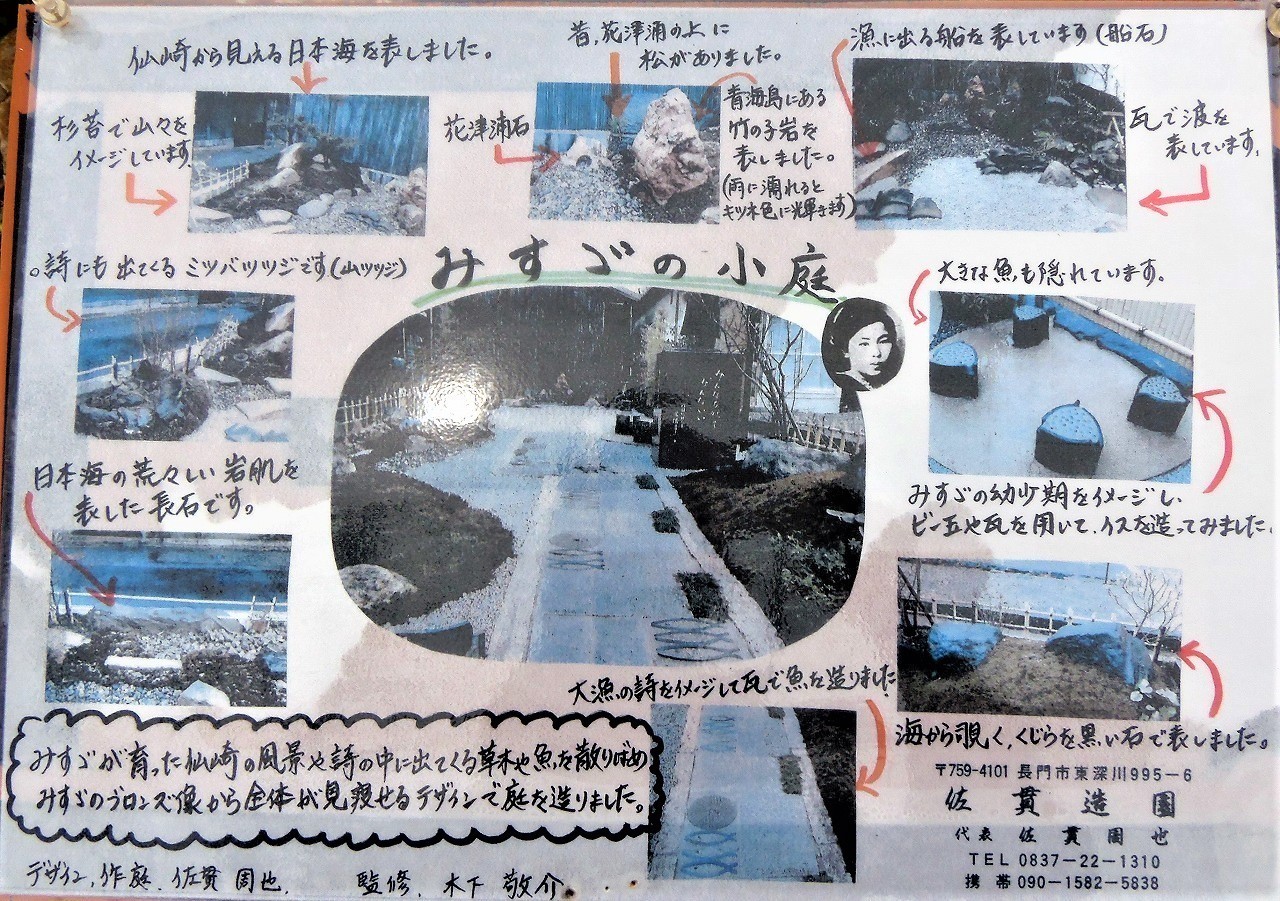 仙崎から見える日本海を表しました。
昔、花津浦の上に
松がありました。
漁に出る船を表しています(船石)
杉苔で山々を
イメージしています
花津浦石
青海島にある
竹の子岩を
表しました。
(雨に濡れると
キツネ色に輝きます)
瓦で波を
表しています。
みすゞの小庭
。詩にも出てくるミツバツツジです(山ツツジ)
大きな魚も隠れています。
日本海の荒々しい岩肌を
表した長石です。
みすゞの幼少期をイメージし、
ビー玉や瓦を用いて、イスを造ってみました。
大漁の詩をイメージして瓦で魚を造りました
海から覗く、くじらを黒い石で表しました。
みすゞが育った仙崎の風景や詩の中に出てくる草木や魚を散りばめ
みすゞのブロンズ像から全体が見渡せるデザインで庭を造りました。
デザイン、作庭、佐貫周也、 監修、木下敬介
〒759-4101 長門市東深川995-6
佐貫造園
代表 佐貫周也
TEL 0837-22-1310
携帯 090-1582-5838